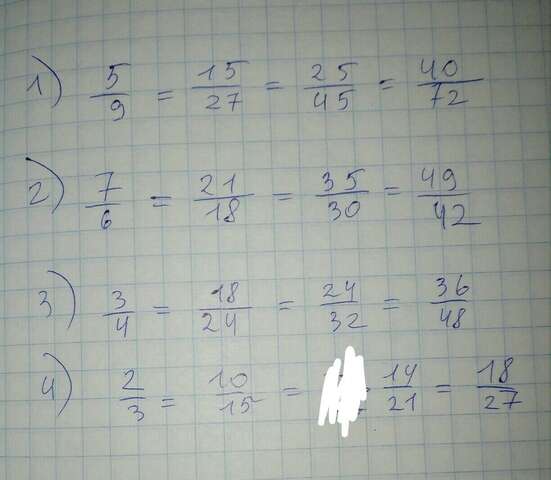 1) 5/9 = 15/27 = 25/45 = 40/72
2) 7/6 = 21/18 = 35/30 = 49/42
3) 3/4 = 18/24 = 24/32 = 36/48
4) 2/3 = 10/15 = 14/21 = 18/27